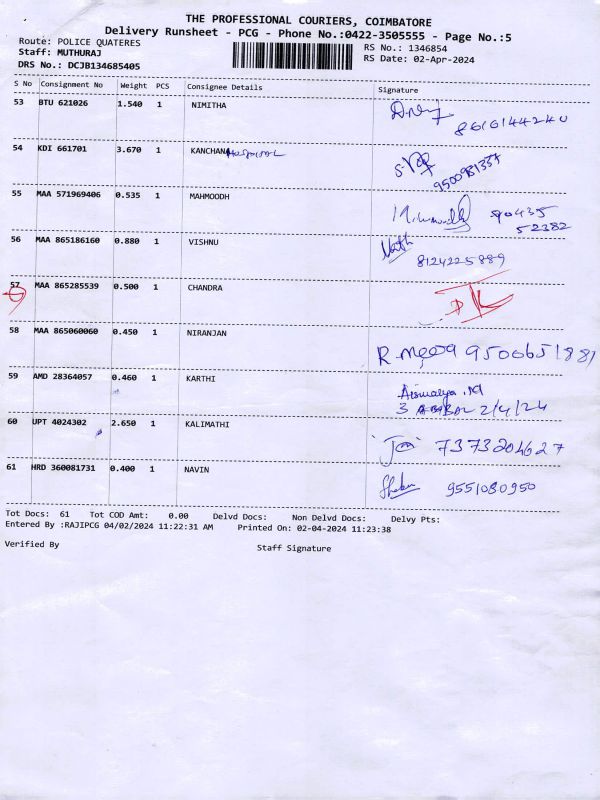 THE PROFESSIONAL COURIERS, COIMBATORE
Delivery Runsheet - PCG - Phone No.:0422-3505555 - Page No.:5
Route: POLICE QUATERES
Staff: MUTHURAJ
RS No.: 1346854
DRS No.: DCJB134685405
RS Date: 02-Apr-2024
S No Consignment No Weight PCS Consignee Details Signature
53 BTU 621026 1.540 1 NIMITHA
8616144240
54 KDI 661701 3.670 1 KANCHANA Hospital
55 MAA 571969406 0.535 1 MAHMOODH
90435
52382
56 MAA 865186160 0.880 1 VISHNU
8124225889
57 MAA 865285539 0.500 1 CHANDRA
58 MAA 865060060 0.450 1 NIRANJAN
R meera 9500651881
59 AMD 28364057 0.460 1 KARTHI
2/4/24
60 UPT 4024302 2.650 1 KALIMATHI
7373204627
61 HRD 360081731 0.400 1 NAVIN
9551080950
Tot Docs: 61 Tot COD Amt: 0.00 Delvd Docs: Non Delvd Docs: Delvy Pts:
Entered By :RAJIPCG 04/02/2024 11:22:31 AM Printed On: 02-04-2024 11:23:38
Verified By Staff Signature